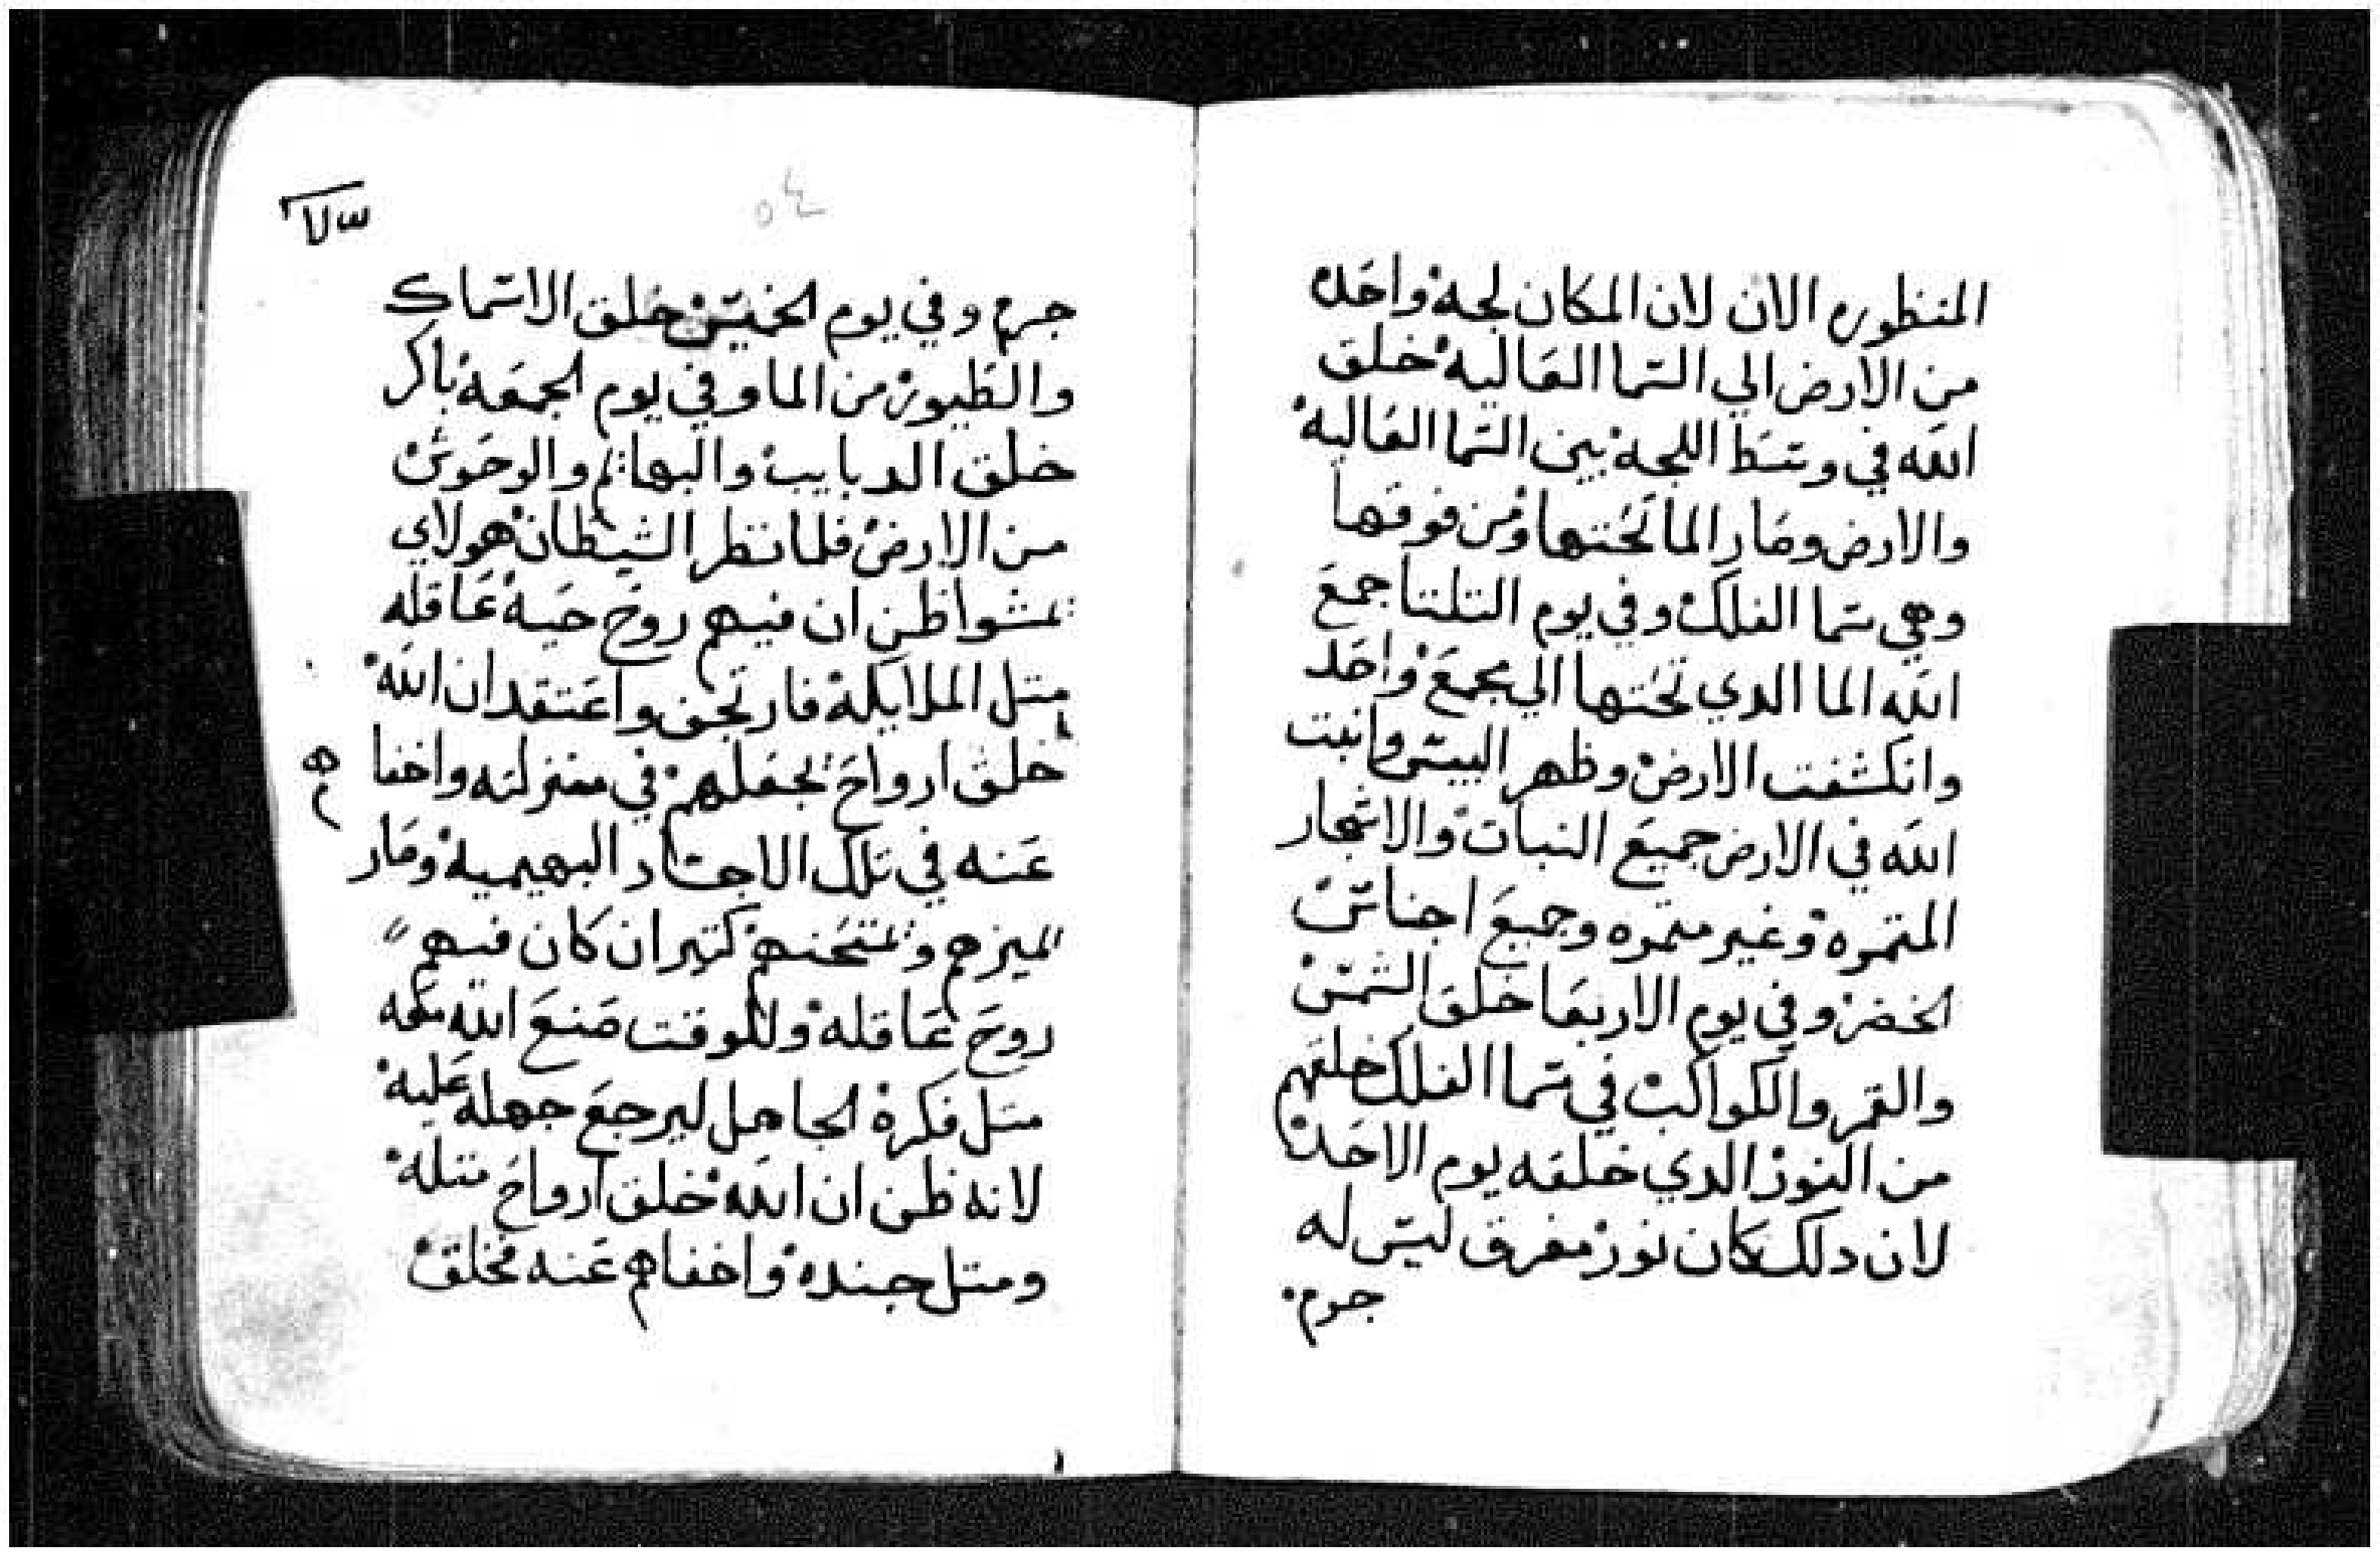 المنظوره الان لان المكان لجة واحده
من الارض الي السما العاليه خلق
الله في وسط اللجة بين السما العاليه
والارض وصار الما تحتها ومن فوقها
وهي سما الفلك وفي يوم التلتا جمع
الله الما الدي تحتها الي مجمع واحد
وانكشفت الارض وظهر اليبس وانبت
الله في الارض جميع النبات والاشجار
المتمره وغير متمره وجميع اجناس
الخضر وفي يوم الاربعا خلق الشمس
والقمر والكواكب في سما الفلك خلقهم
من النور الدي خلقه يوم الاحد
لان دلك كان نور مفرق ليس له
جرم
٥٤
جرم وفي يوم الخميس خلق الاسماك
والطيور من الما وفي يوم الجمعة باكر
خلق الدبايب والبهائم والوحوش
من الارض فلما نظر الشيطان هولاي
تمشوا ظن ان فيهم روح حية عاقله
متل الملايكة فارتجف واعتقد ان الله
خلق ارواح لجعلهم في منزلته واخفا
عنه في تلك الاجساد البهيمية وصار
يميزهم ويمتحنهم كتير ان كان فيهم
روح عاقله وللوقت صنع الله معه
متل فكرة الجاهل ليرجع جهله عليه
لانه ظن ان الله خلق ارواح متله
ومتل جنده واخفاهم عنه فخلق